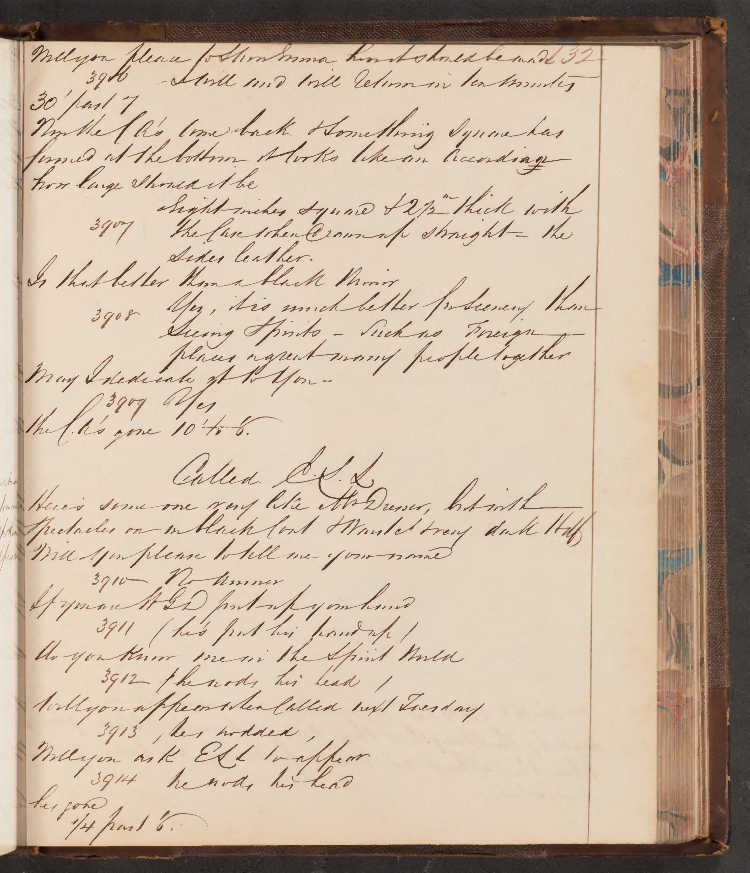 Will you please to show Emma how it should be made 132
3906 - I will and will return in ten minutes
30' past 7
Now the C.A's come back & something square has
formed at the bottom it looks like an according
how large should it be
Eight inches square & 2 1/2 in thick with
3907 the Case when drawn up straight - the
sides leather.
Is that better than a black Mirror
Yes, it is much better for Scenery than
3908
Seeing Spirits - Such as Foreign
places a great many people together
May I dedicate it to you -
3909 Yes
the C.A's gone 10' to 8.
Called E.S.L
Here's some one very like Mr Dresser, but with
Spectacles on in black Coat & Waistct & very dark
Will you please to tell me your name
3910 No Answer
If you are put up your hand
3911 (he's put his hand up)
do you know me in the Spirit World
3912 (he nods his head)
Will you appear when Called next Tuesday
3913 , he's nodded,
Will you ask ESL to appear
3914 he nods his head
he's gone
1/4 past 8.